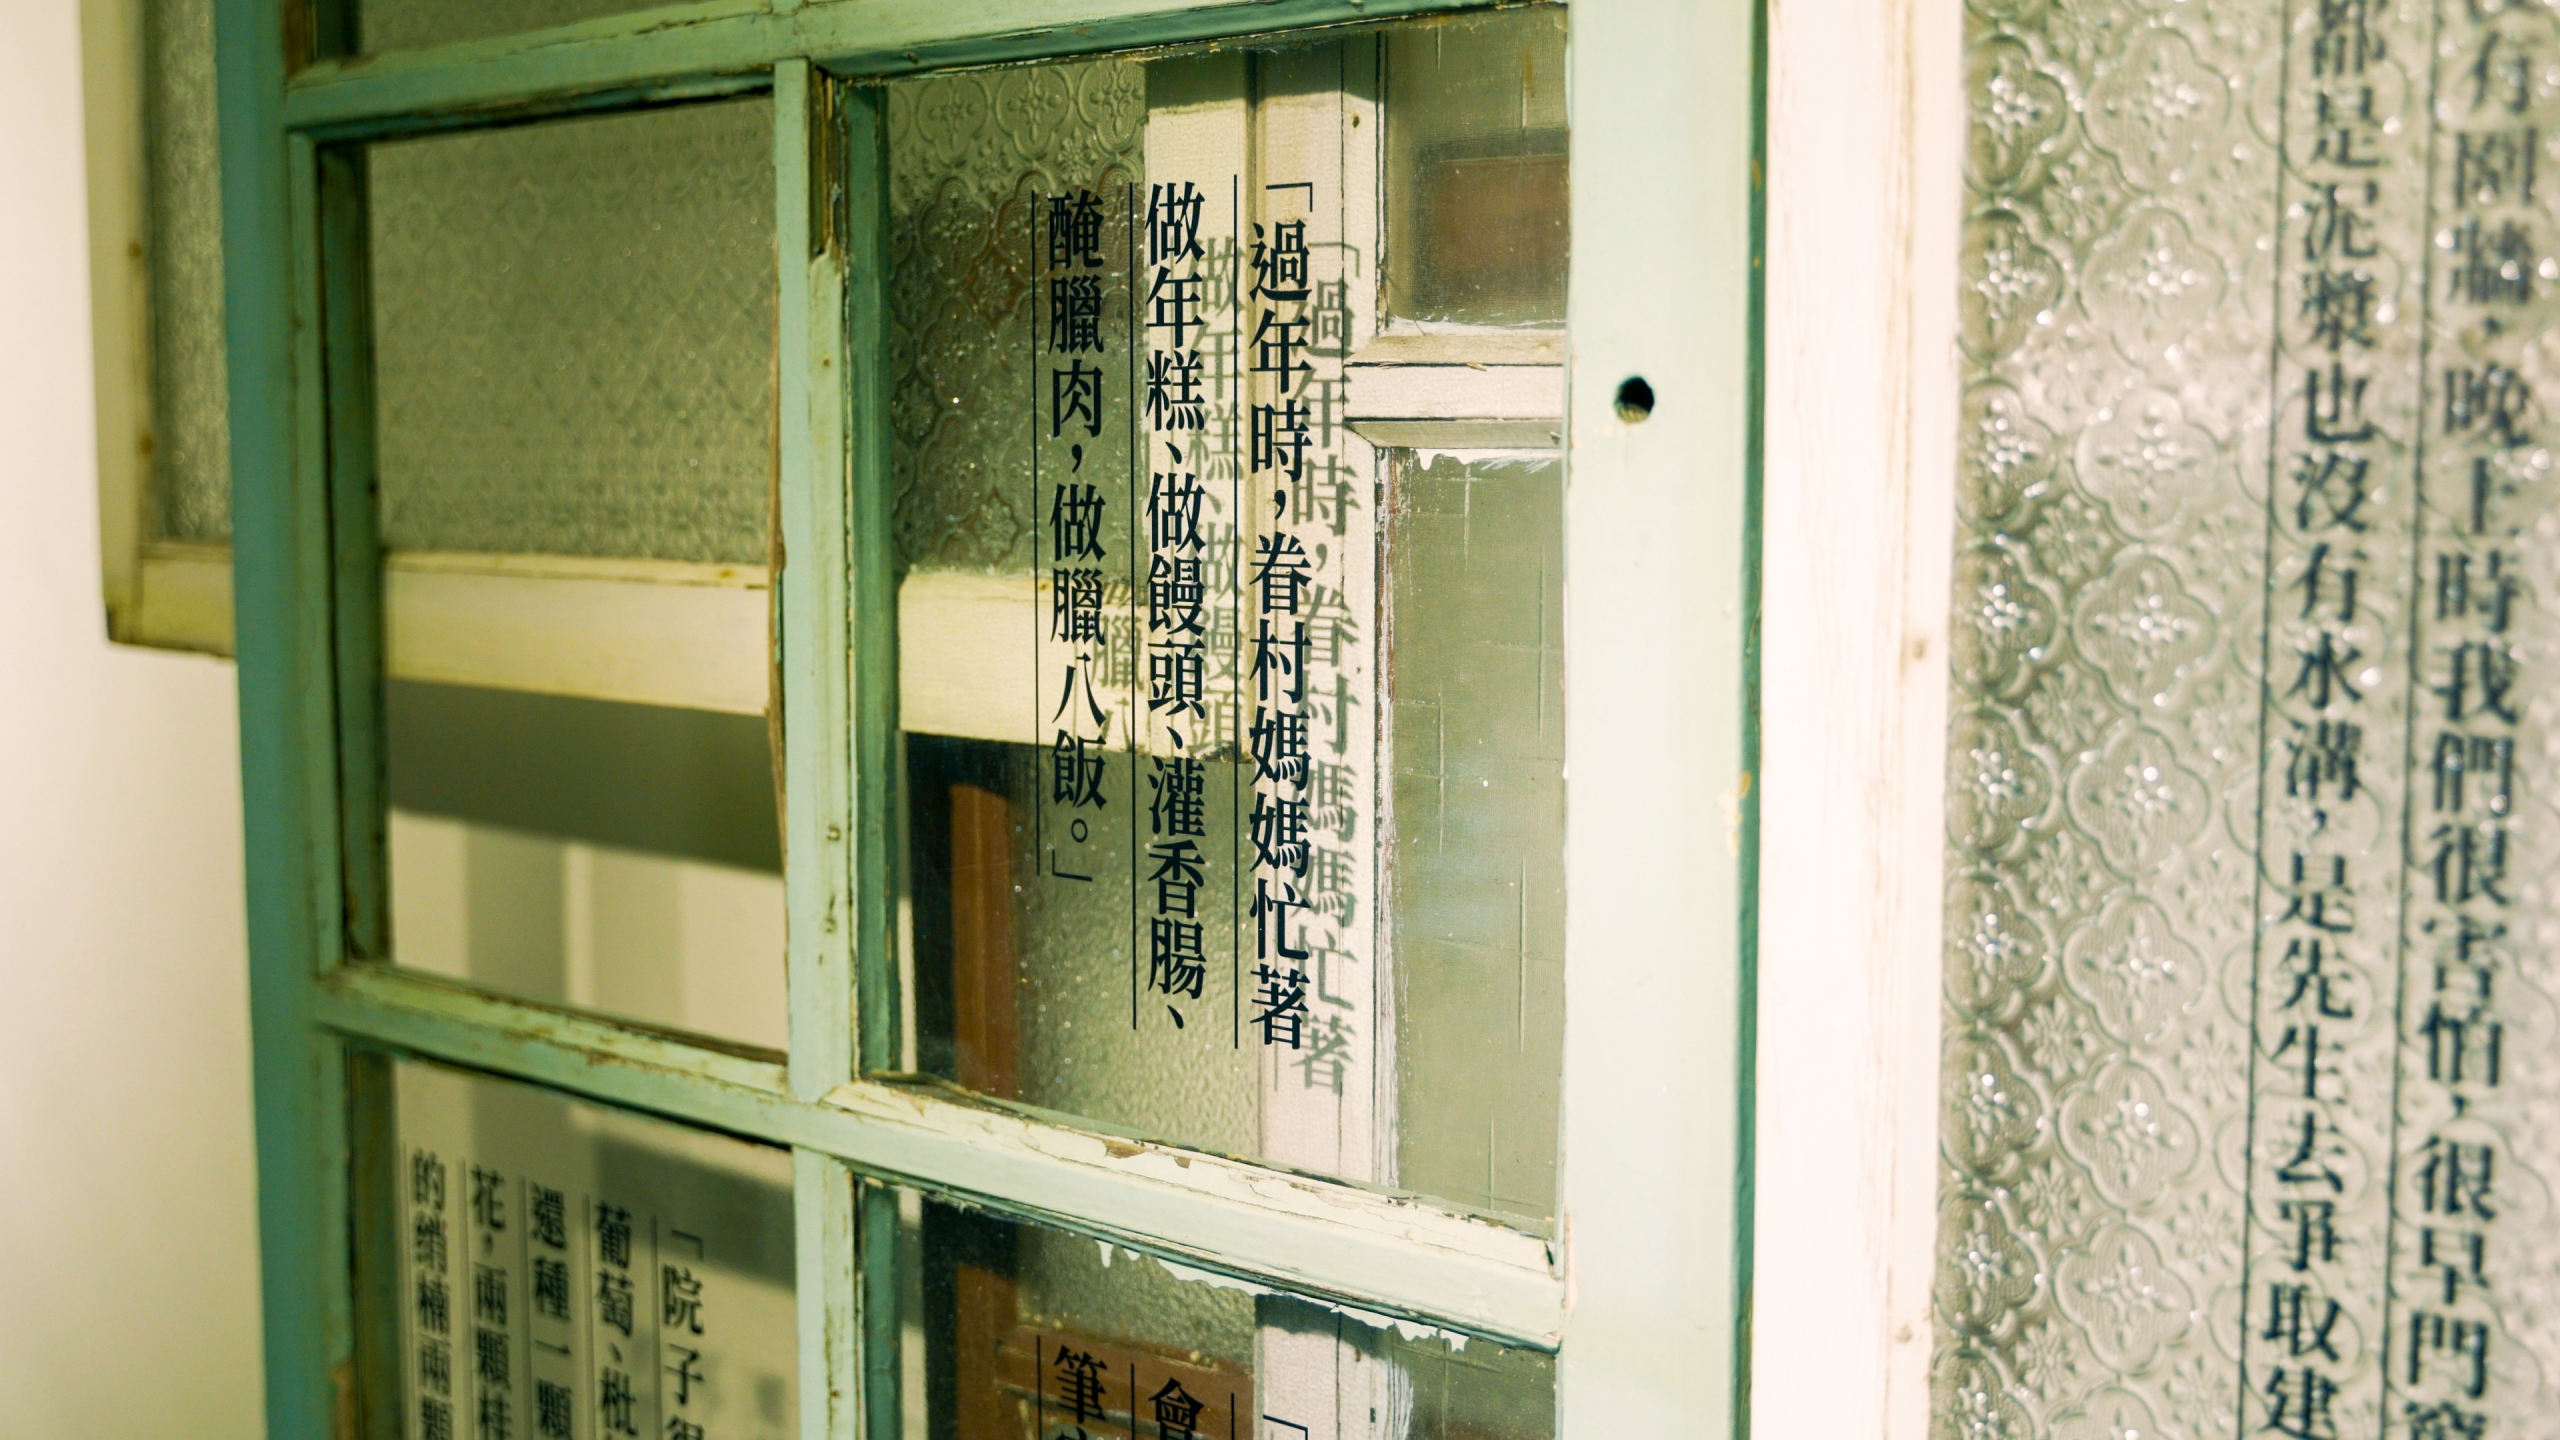 有圍牆，晚上時我們很害怕，很早門窗
都是泥漿也沒有水溝，是先生去爭取建
「過年時，眷村媽媽忙著
做年糕、做饅頭、灌香腸、
醃臘肉，做臘八飯。」
會
筆
「院子很
葡萄、枇
還種一顆
花，兩顆桂
的綃楠兩顆